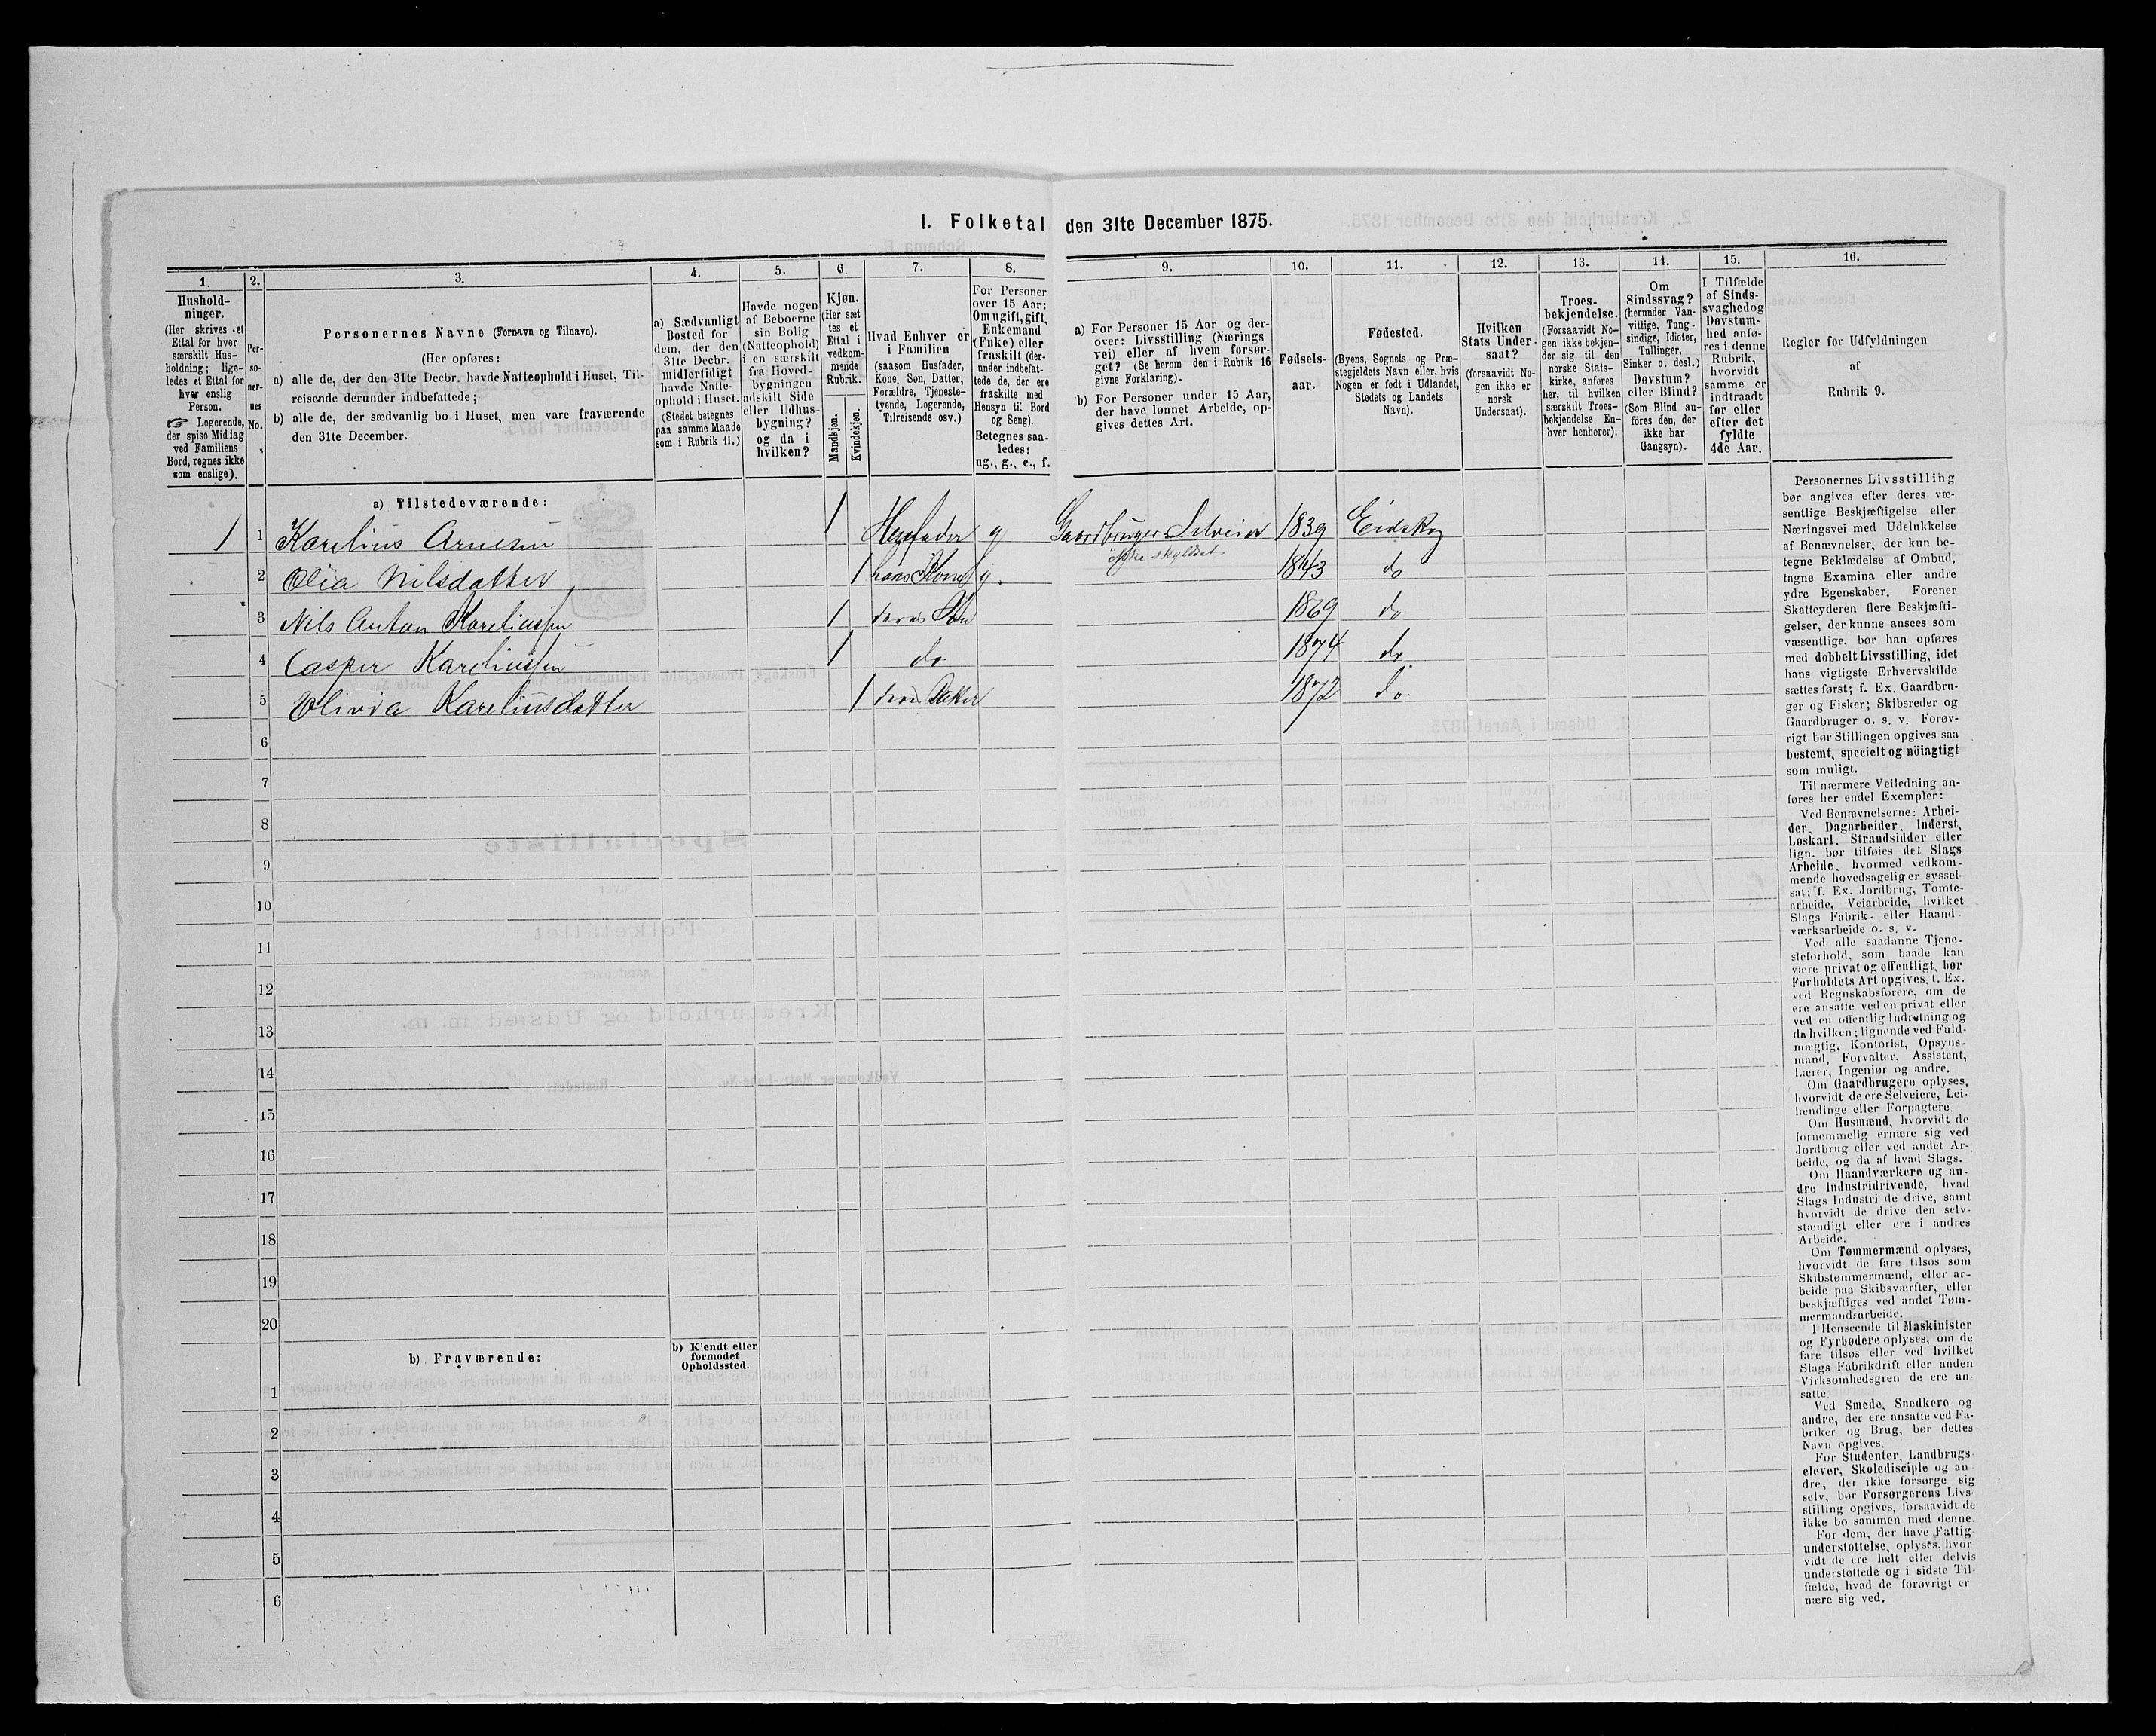 I. Folketal den 31te December 1875.
1.
Hushold-
ninger.
(Her skrives et
Ettal for hver
særskilt Hus-
holdning; lige-
ledes et Ettal for
hver enslig
Person.
☞ Logerende,
der spise Middag
ved Familiens
Bord, regnes ikke
som enslige).
2.
Per-
so-
ner-
nes
No.
3.
Personernes Navne (Fornavn og Tilnavn).
(Her opføres:
a) alle de, der den 31te Decbr. havde Natteophold i Huset, Til-
reisende derunder indbefattede;
b) alle de, der sædvanlig bo i Huset, men vare fraværende
den 31te December.
4.
a) Sædvanligt
Bosted for
dem, der den
31te Decbr.
midlertidigt
havde Natte-
ophold i Huset.
(Stedet betegnes
paa samme Maade
som i Rubrik 11.)
5.
Havde nogen
af Beboerne
sin Bolig
(Natteophold)
i en særskilt
fra Hoved-
bygningen
adskilt Side
eller Udhus-
bygning?
og da i
hvilken?
6.
Kjøn.
(Her sæt
tes et
Ettal i
vedkom-
mende
Rubrik.
Mandkjøn.
Kvindekjøn.
7.
Hvad Enhver er
i Familien
(saasom Husfader,
Kone, Søn, Datter,
Forældre, Tjeneste-
tyende, Logerende,
Tilreisende osv.)
8.
For Personer
over 15 Aar:
Om ugift, gift,
Enkemand
(Enke) eller
fraskilt (der-
under indbefat-
tede de, der ere
fraskilte med
Hensyn til Bord
og Seng).
Betegnes saa-
ledes:
ug., g., e., f.
9.
a) For Personer 15 Aar og der-
over: Livsstilling (Nærings
vei) eller af hvem forsør-
get? (Se herom den i Rubrik 16
givne Forklaring).
b) For Personer under 15 Aar,
der have lønnet Arbeide, op-
gives dettes Art.
10.
Fødsels-
aar.
11.
Fødested.
(Byens, Sognets og Præ-
stegjeldets Navn eller, hvis
Nogen er født i Udlandet,
Stedets og Landets
Navn).
12.
Hvilken
Stats Under-
saat?
(forsaavidt No-
gen ikke er
norsk
Undersaat).
13.
Troes-
bekjendelse.
(Forsaavidt No-
gen ikke bekjen-
der sig til den
norske Stats-
kirke, anføres
her, til hvilken
særskilt Troes-
bekjendelse En-
hver henhører).
14.
Om
Sindssvag?
(herunder Van-
vittige, Tung-
sindige, Idioter,
Tullinger,
Sinker o. desl.)
Døvstum?
eller Blind?
(Som Blind an-
føres den, der
ikke har
Gangsyn).
15.
I Tilfælde
af Sinds-
svaghed og
Døvstum-
hed anfø-
res i denne
Rubrik,
hvorvidt
samme er
indtraadt
før eller
efter det
fyldte
4de Aar.
16.
Regler for Udfyldningen
af
Rubrik 9.
a) Tilstedeværende:
1 1 Karelius Arnesen 1 Husfader g Gaardbruger Selveier 1839 Eidskog
ikke skyldsat
2 Olia Nilsdatter 1 hans Kone g. 1843 do
3 Nils Anton Kareliussen 1 deres Søn 1869 do
4 Casper Kareliussen 1 do 1874 do.
5 Olivia Kareliusdatter 1 deres Datter 1872 do.
6
7
8
9
10
11
12
13
14
15
16
17
18
19
20
b) Fraværende:
b) Kjendt eller
formodet
Opholdssted.
1
2
3
4
5
6
Personernes Livsstilling
bør angives efter deres væ-
sentlige Beskjæftigelse eller
Næringsvei med Udelukkelse
af Benævnelser, der kun be-
tegne Beklædelse af Ombud,
tagne Examina eller andre
ydre Egenskaber. Forener
Skatteyderen flere Beskjæfti-
gelser, der kunne ansees som
væsentlige, bør han opføres
med dobbelt Livsstilling, idet
hans vigtigste Erhvervskilde
sættes først; f. Ex. Gaardbru-
ger og Fisker; Skibsreder og
Gaardbruger o. s. v. Forøv-
rigt bør Stillingen opgives saa
bestemt, specielt og nöiagtigt
som muligt.
Til nærmere Veiledning an-
føres her endel Exempler:
Ved Benævnelserne: Arbei-
der, Dagarbeider, Inderst,
Løskarl, Strandsidder eller
lign. bør tilføies det Slags
Arbeide, hvormed vedkom-
mende hovedsagelig er syssel-
sat; f. Ex. Jordbrug, Tomte-
arbeide, Veiarbeide, hvilket
Slags Fabrik- eller Haand-
værksarbeide o. s. v.
Ved alle saadanne Tjene-
steforhold, som baade kan
være privat og offentligt, bør
Forholdets Art opgives, t. Ex.
ved Regnskabsførere, om de
ere ansatte ved en privat eller
ved en offentlig Indretning og
da hvilken; lignende ved Fuld-
mægtig, Kontorist, Opsyns-
mand, Forvalter, Assistent,
Lærer, Ingeniør og andre.
Om Gaardbrugere oplyses,
hvorvidt de ere Selveiere, Lei-
lændinge eller Forpagtere.
Om Husmænd, hvorvidt de
fornemmelig ernære sig ved
Jordbrug eller ved andet Ar-
beide, og da af hvad Slags.
Om Haandværkere og an-
dre Industridrivende, hvad
Slags Industri de drive, samt
hvorvidt de drive den selv-
stændigt eller ere i andres
Arbeide.
Om Tømmermænd oplyses,
hvorvidt de fare tilsøs som
Skibstømmermænd, eller ar-
beide paa Skibsværfter, eller
beskjæftiges ved andet Tøm-
mermandsarbeide.
I Henseende til Maskinister
og Fyrbødere oplyses, om de
fare tilsøs eller ved hvilket
Slags Fabrikdrift eller anden
Virksomhedsgren de ere an-
satte.
Ved Smede, Snedkere og
andre, der ere ansatte ved Fa-
briker og Brug, bør dettes
Navn opgives.
For Studenter, Landbrugs
elever, Skoledisciple og an-
dre, der ikke forsørge sig
selv, bør Forsørgerens Livs-
stilling opgives, forsaavidt de
ikke bo sammen med denne.
For dem, der have Fattig-
understøttelse, oplyses, hvor
vidt de ere helt eller delvis
understøttede og i sidste Til-
fælde, hvad de forøvrigt er
nære sig ved.